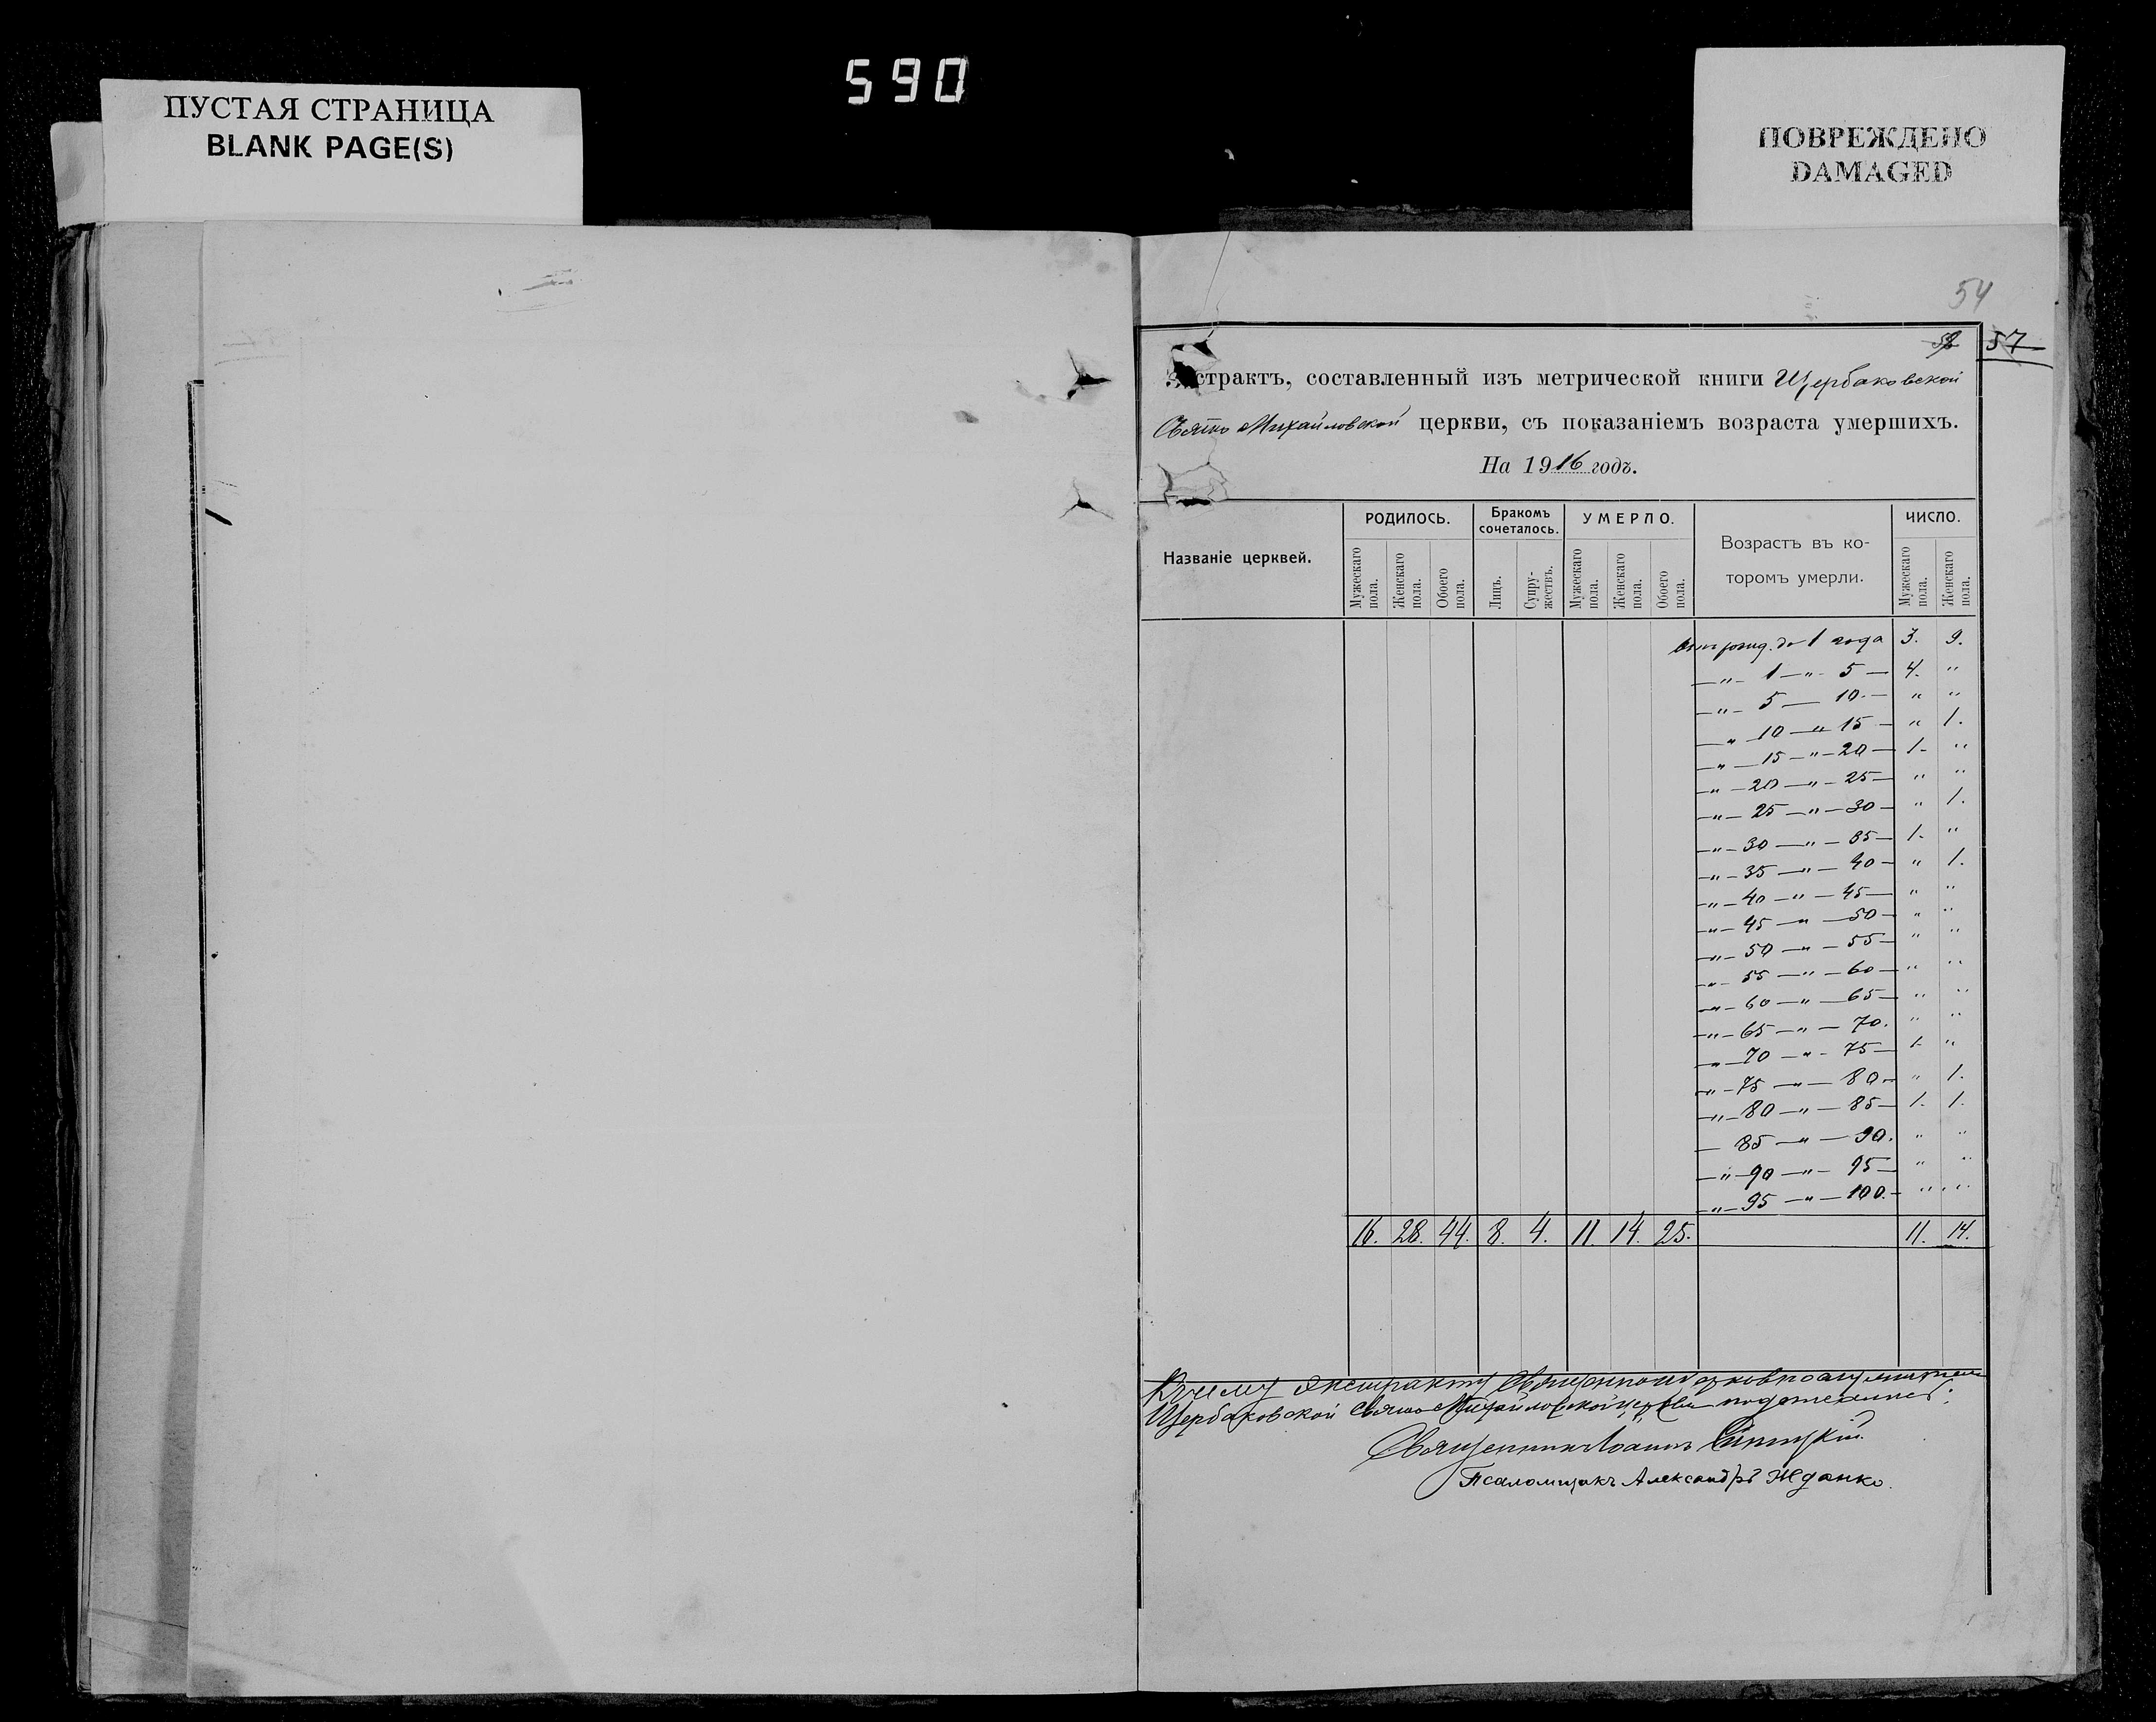 590
ПУСТАЯ СТРАНИЦА
BLANK PAGE(S)
ПОВРЕЖДЕНО
DAMAGED
54
57
страктъ, составленный изъ метрической книги Щербаковской
Свято Михайловской церкви, съ показаніемъ возраста умершихъ.
На 1916 годъ.
Названіе церквей.
РОДИЛОСЬ.
Мужескаго пола.
Женскаго пола.
Обоего пола.
Бракомъ сочеталось.
Лицъ.
Супружествъ.
УМЕРЛО.
Мужескаго пола.
Женскаго пола.
Обоего пола.
Возрастъ въ ко-
торомъ умерли.
ЧИСЛО.
Мужескаго пола.
Женскаго пола.
Отъ рожд. до 1 года 3. 9.
—"— 1 —"— 5 — 4. "
—"— 5 — 10. — " "
—"— 10 —"— 15 — " 1.
—"— 15 —"— 20 — 1. "
—"— 20 —"— 25 — " "
—"— 25 —"— 30 — " 1.
—"— 30 —"— 35 — 1. "
—"— 35 —"— 40 — " 1.
—"— 40 —"— 45 — " "
—"— 45 —"— 50 — " "
—"— 50 —"— 55 — " "
—"— 55 —"— 60 — " "
—"— 60 —"— 65 — " "
—"— 65 —"— 70. " "
—"— 70 —"— 75 — 1. "
—"— 75 —"— 80 — " 1.
—"— 80 —"— 85 — 1. 1.
— 85 —"— 90. " "
—"— 90 —"— 95 — " "
—"— 95 —"— 100. — " "
16. 28. 44. 8. 4. 11. 14. 25. 11. 14.
Къ сему экстракту
Щербаковской Свято Михайловской церкви
Священникъ Іоаннъ
Псаломщикъ Александръ Жданко.